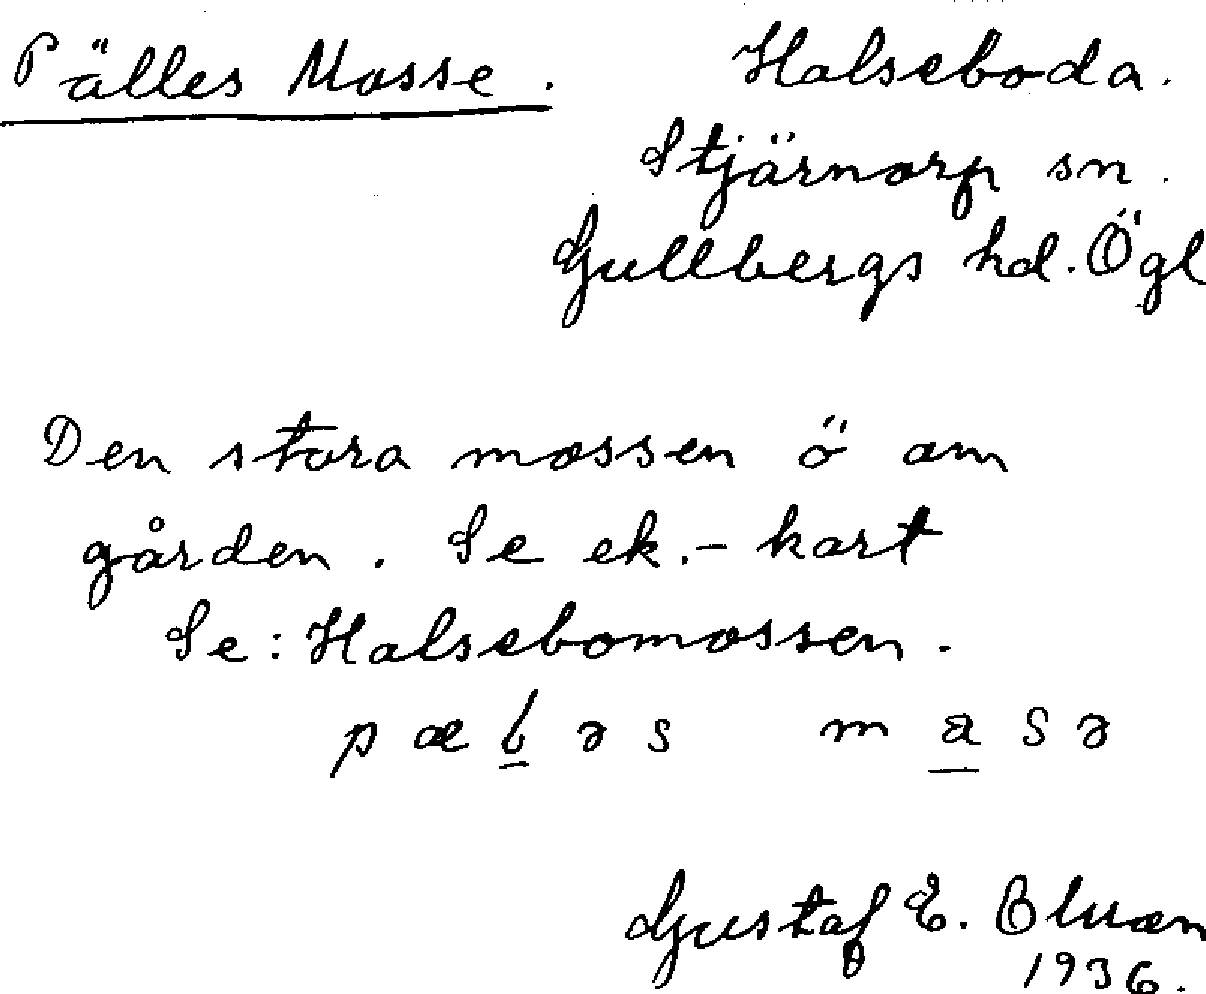 Pälles Mosse. Halseboda.
Stjärnorp sn.
Gullbergs hd. Ögl
Den stora mossen ö om
gården. Se ek.-kart
Se: Halsebomossen.
Gustaf E.
1936.